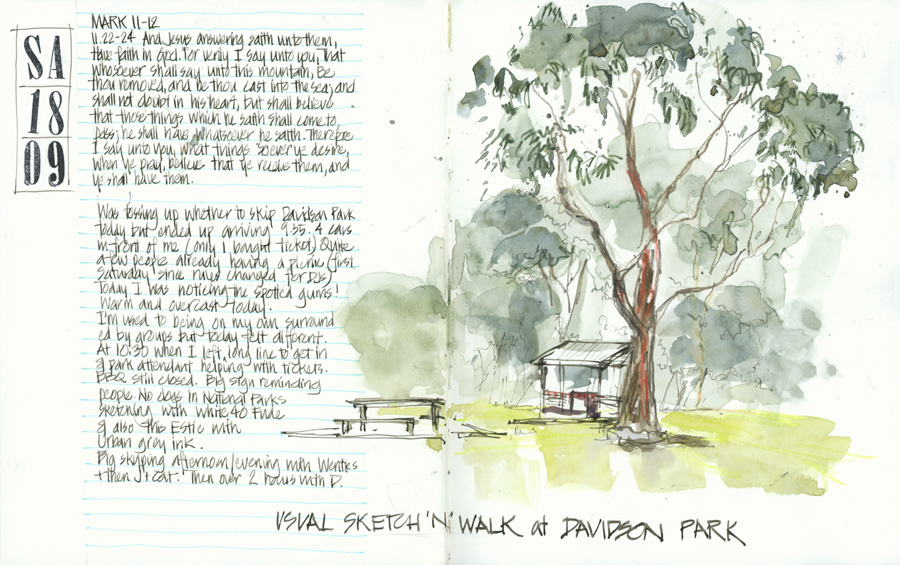 SA
18
09
MARK 11-12
11.22-24 And Jesus answering saith unto them,
Have faith in God. For verily I say unto you, That
whosoever shall say unto this mountain, Be
thou removed, and be thou cast into the sea; and
shall not doubt in his heart, but shall believe
that those things which he saith shall come to
pass; he shall have whatsoever he saith. Therefore
I say unto you, what things soever ye desire,
when ye pray, believe that ye receive them, and
ye shall have them.
Was tossing up whether to skip Davidson Park
today but ended up arriving 9.35. 4 cars
in front of me (only 1 bought ticket) Quite
a few people already having a picnic (first
Saturday since rules changed for
Today I was noticing the spotted gums!
Warm and overcast today.
I'm used to being on my own surround
ed by groups but today felt different.
At 10:30 when I left, long line to get in
& park attendant helping with tickets.
BBQ still closed. Big sign reminding
people. No dogs in National Parks
Sketching with White 40 Fude
& also this Estie with
Urban grey ink.
Big skyping afternoon/evening with
+ then J + Cat. Then over 2 hours with D.
USUAL SKETCH 'N' WALK at DAVIDSON PARK